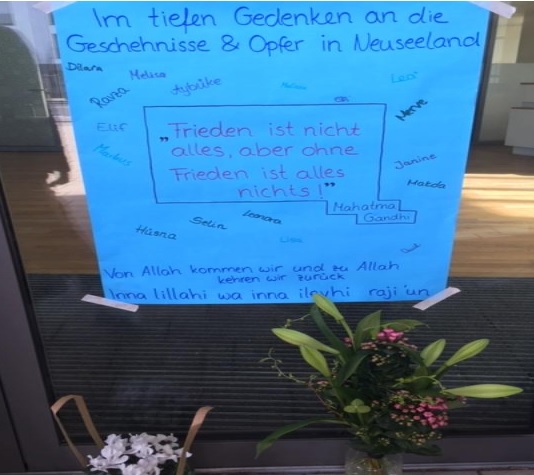 Im tiefen Gedenken an die
Geschehnisse & Opfer in Neuseeland
Dilara
Melisa
Rana
Aybüke
Leni
Merve
Elif
Markus
„Frieden ist nicht
alles, aber ohne
Frieden ist alles
nichts!”
Mahatma
Gandhi
Janine
Makda
Hüsna
Selin
Leonora
Lina
Von Allah kommen wir und zu Allah
kehren wir zurück
Inna lillahi wa inna ileyhi raji'un